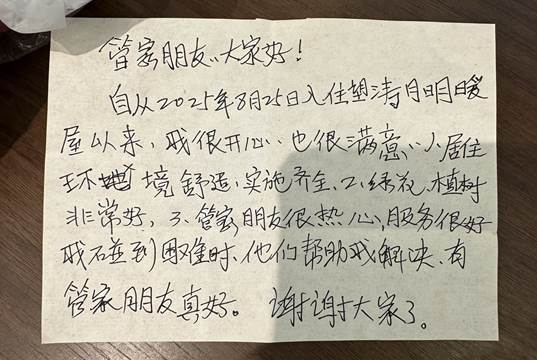 管家朋友、大家好！
自从2025年8月25日入住塑涛月明暖
屋以来，我很开心、也很满意、1、居住
环境舒适，实施齐全、2、绿花、植树
非常好，3、管家朋友很热心，服务很好
我碰到困难时、他们帮助我解决、有
管家朋友真好。谢谢大家了。